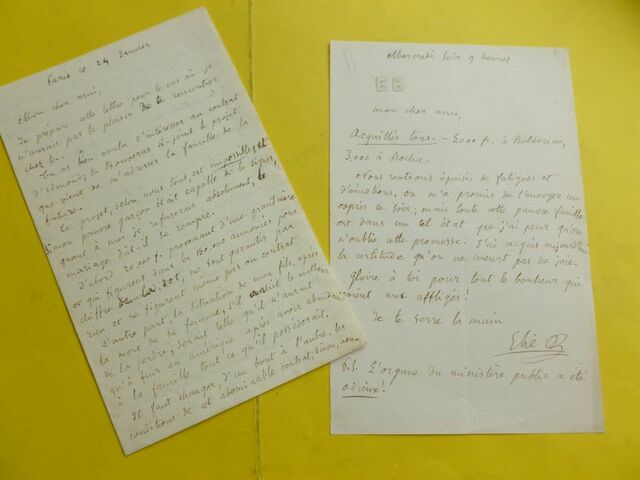 Paris ce 24 Janvier
Mon cher ami,
Je prépare cette lettre pour le cas où je
n'aurais pas le plaisir de te rencontrer
chez toi.
Tu as bien voulu t'intéresser au contrat
d'Edmond, tu trouveras ci-joint le projet
que vient de m'adresser la famille de la
future.
Ce projet, selon nous tous, est impossible, et
Simon pauvre garçon était capable de le signer,
quant à moi je refuserais absolument, le
mariage dût-il se rompre.
D'abord 20.000 f. provenant d'une grand'mère
et qui figurent dans les 150.000 annoncés pour
chiffre de la dot, ne sont garantis par
rien et ne figurent même pas au contrat.
D'autre part la situation de mon fils, après
la mort de sa femme, s'il avait le malheur
de la perdre, serait telle qu'il n'aurait
qu'à fuir en Amérique après avoir abandonné
à la famille tout ce qu'il possèderait.
Il faut changer, d'un bout à l'autre, les
conditions de cet abominable contrat; sinon, non
Mercredi soir 9 heures
mon cher ami,
Acquittés tous. - 5.000 f. à Baldorini,
3.000 à Roche.
Nous rentrons épuisés de fatigues et
d'émotions. On m'a promis de t'envoyer un
exprès ce soir; mais toute cette pauvre famille
est dans un tel état que j'ai peur qu'on
n'oublie cette promesse. J'ai acquis aujourd'hui
la certitude qu'on ne meurt pas de joie,
gloire à toi pour tout le bonheur qui
aux affligés!
Je te serre la main
Elie
P.S. L'organe du ministère public a été
odieux!